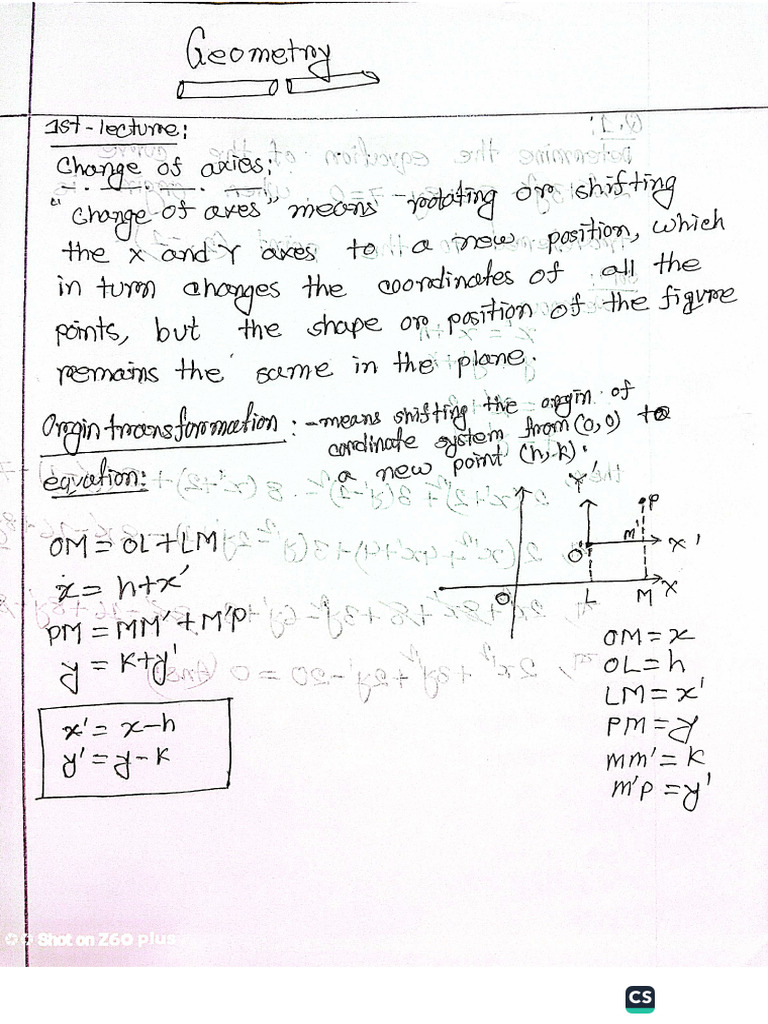 Geometry
1st-lecture:
Change of axies:
"Change of axes" means rotating or shifting
the X and Y axes to a new position, which
in turn changes the coordinates of all the
points, but the shape or position of the figure
remains the same in the plane.
Orgin transformation: -means shifting the origin of
cordinate system from (0,0) to
a new point (h,k).
equation:
OM = OL+LM
x = h+x'
PM = MM'+M'P
y = k+y'
x' = x-h
y' = y-k
Y'
P
M'
X'
O'
O
L
M
X
OM = x
OL = h
LM = x'
PM = y
MM' = k
M'P = y'
Shot on Z60 plus
CS